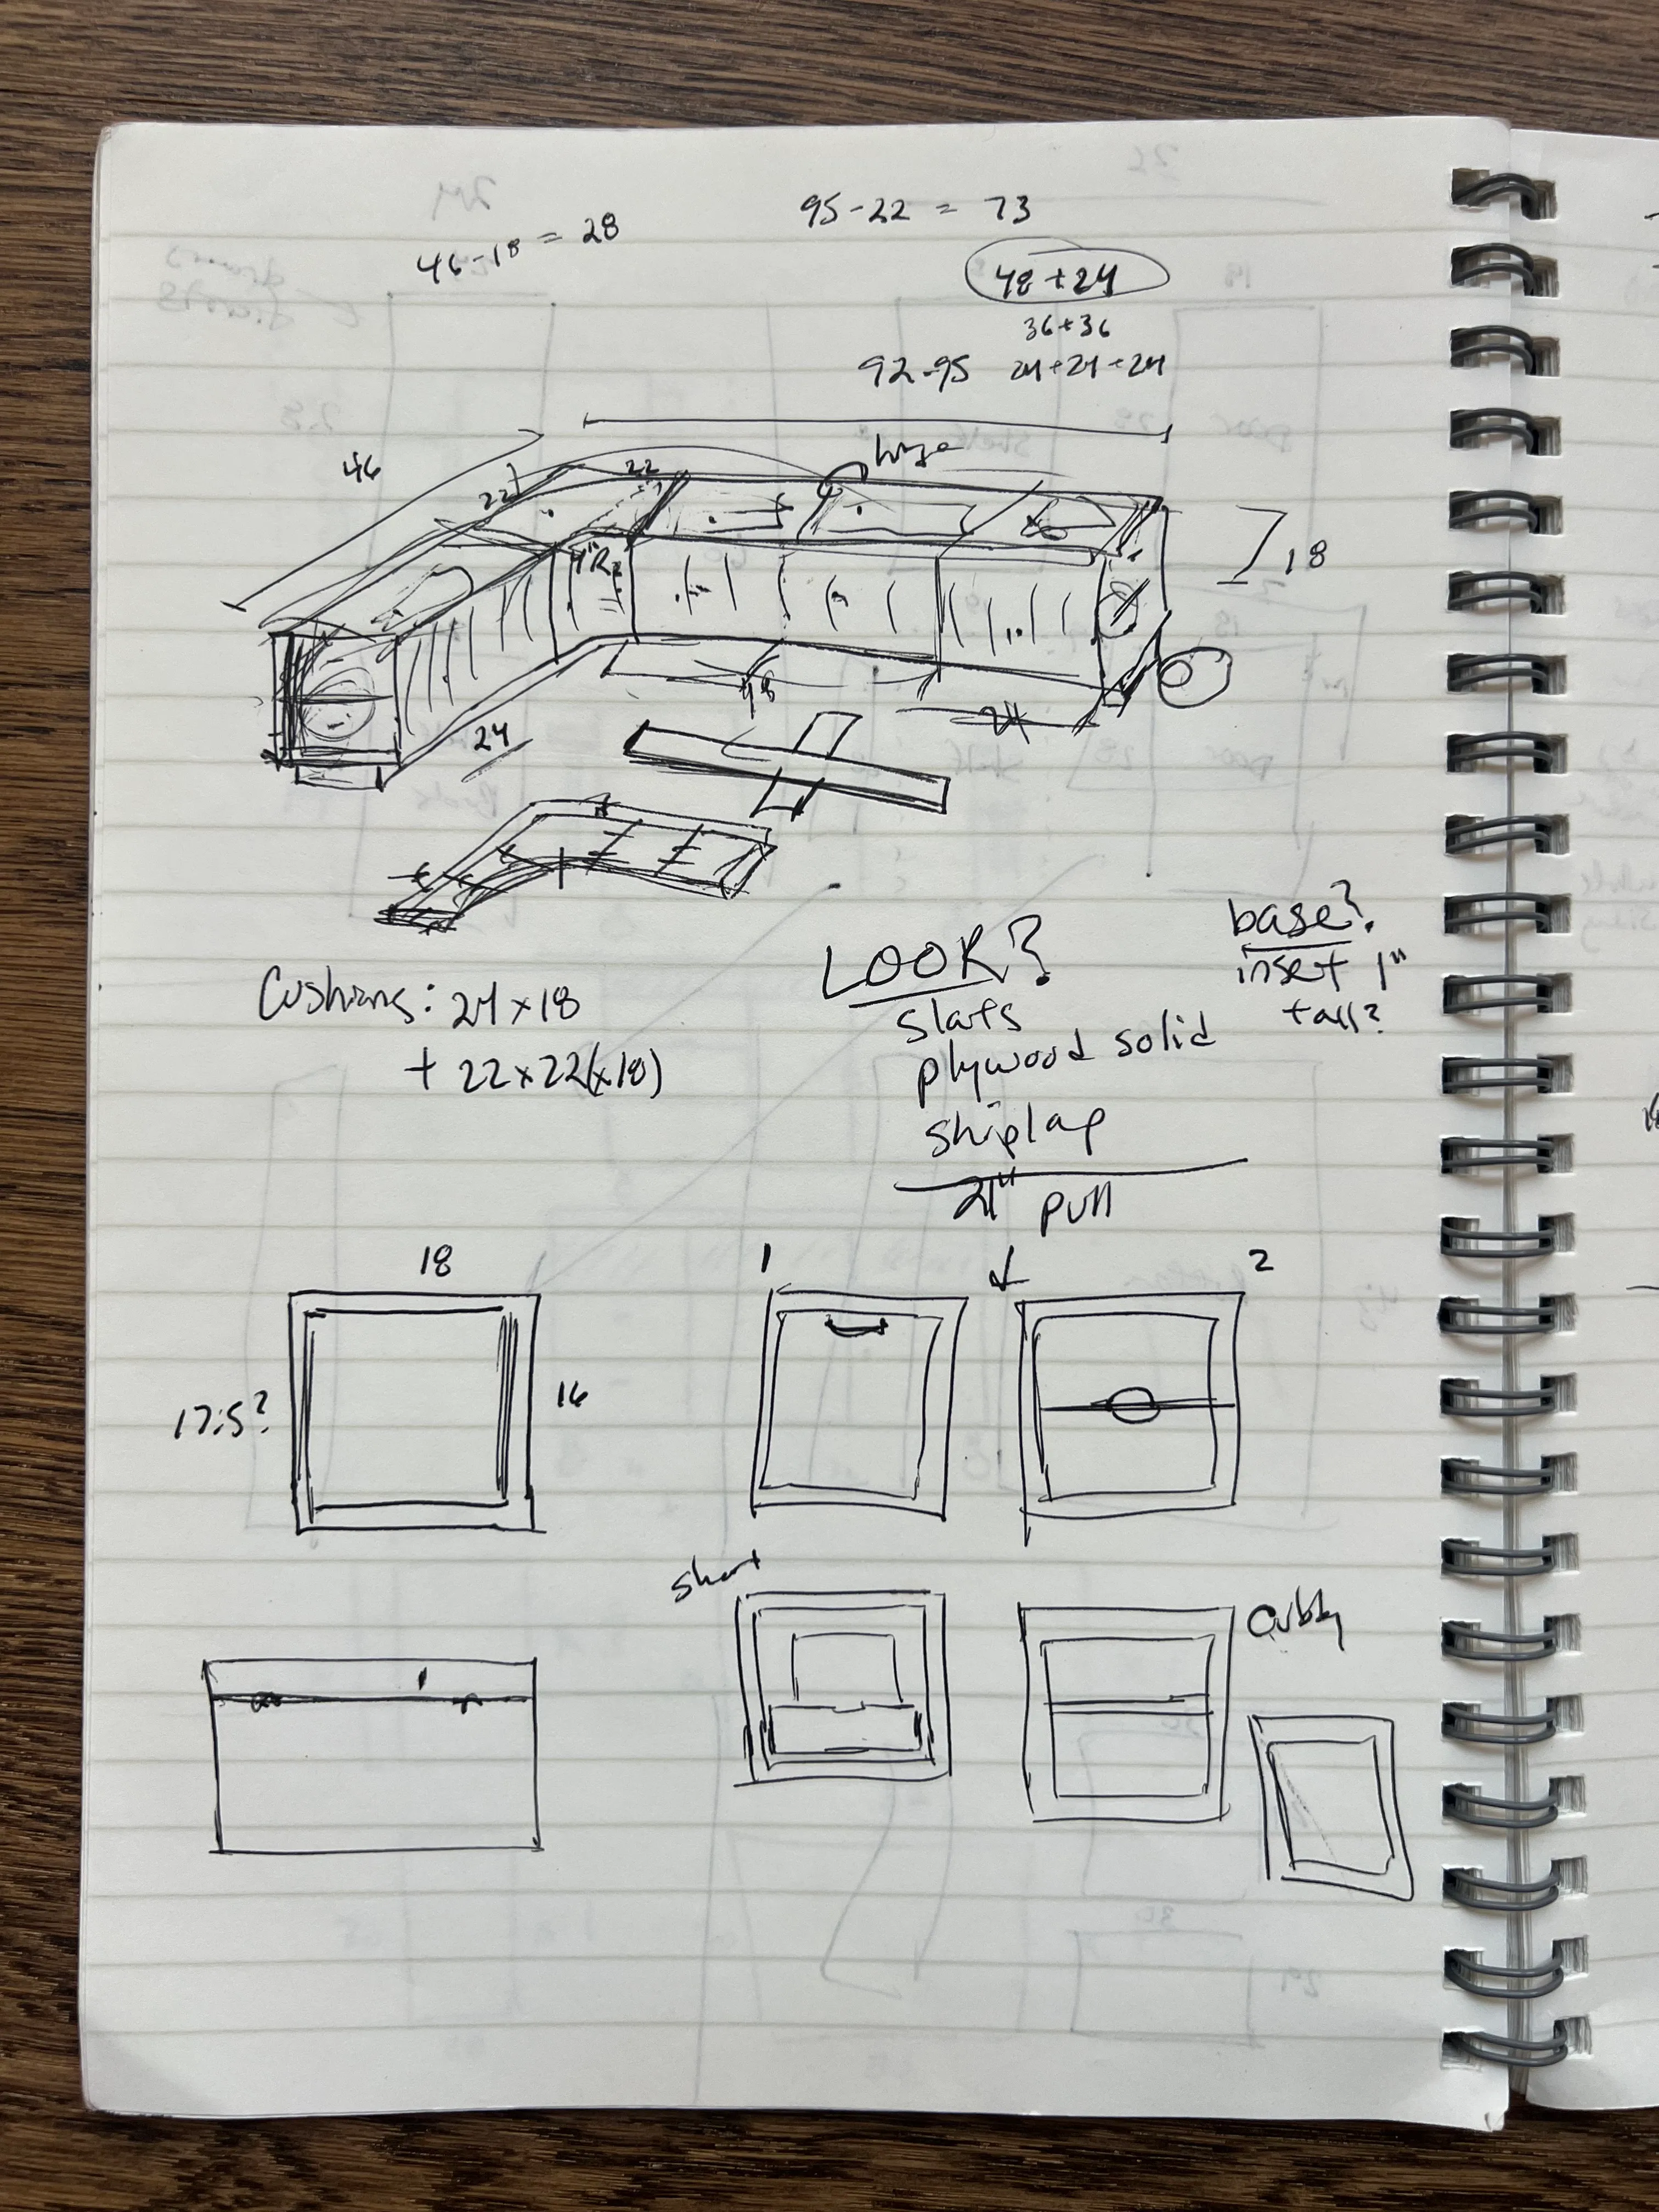 46-18 = 28
95-22 = 73
48 + 24
36+36
92-95 24+24+24
46
22
22
hinge
18
48
24
24
LOOK?
slats
plywood solid
shiplap
base?
inset 1"
tall?
Cushions: 24 x 18
+ 22 x 22 (x18)
21" pull
18
17.5?
16
1
2
short
cubby